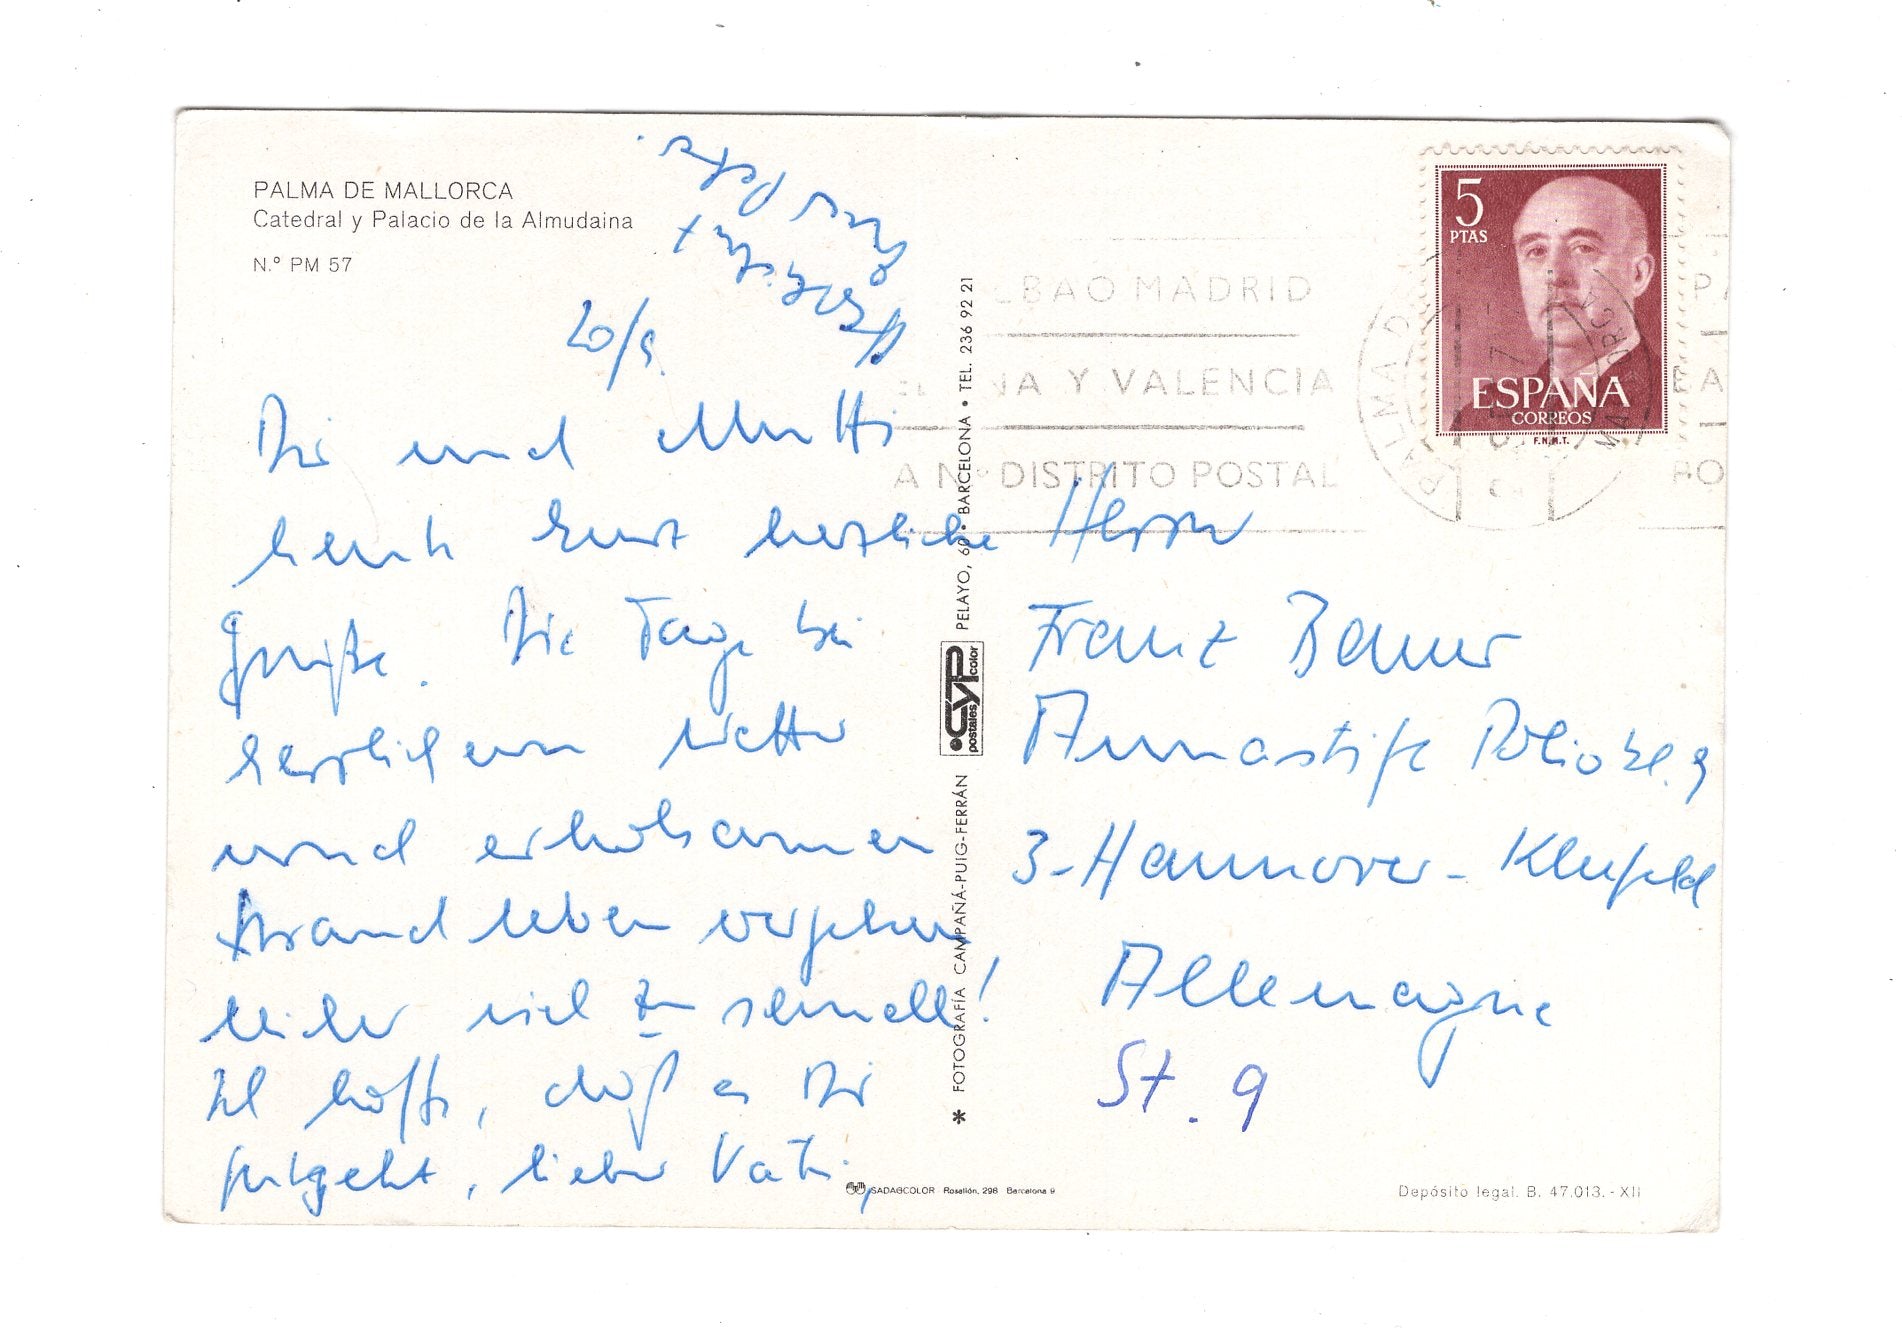 PALMA DE MALLORCA
Catedral y Palacio de la Almudaina
N.º PM 57
20/9.
Dir und Mutti
heute herzliche
Grüße. Die Tage bei
herrlichem Wetter
und erholsamen
Strandleben vergehen
leider viel zu schnell!
Ich hoffe, daß es Dir
gutgeht, lieber Vati,
Herzlichst
Eure
* FOTOGRAFÍA CAMPAÑÁ-PUIG-FERRÁN
CYP
postales color
PELAYO, 60 • BARCELONA • TEL. 236 92 21
5
PTAS
ESPAÑA
CORREOS
F.N.M.T.
LBAO MADRID
NA Y VALENCIA
A Nº DISTRITO POSTAL
PALMA DE MALLORCA
Herrn
Franz Bauer
Annastift Poliokl. 9
3-Hannover-Kleefeld
Allemagne
St. 9
ISADAGCOLOR Rosellón, 298 Barcelona 9
Depósito legal. B. 47.013.-XII